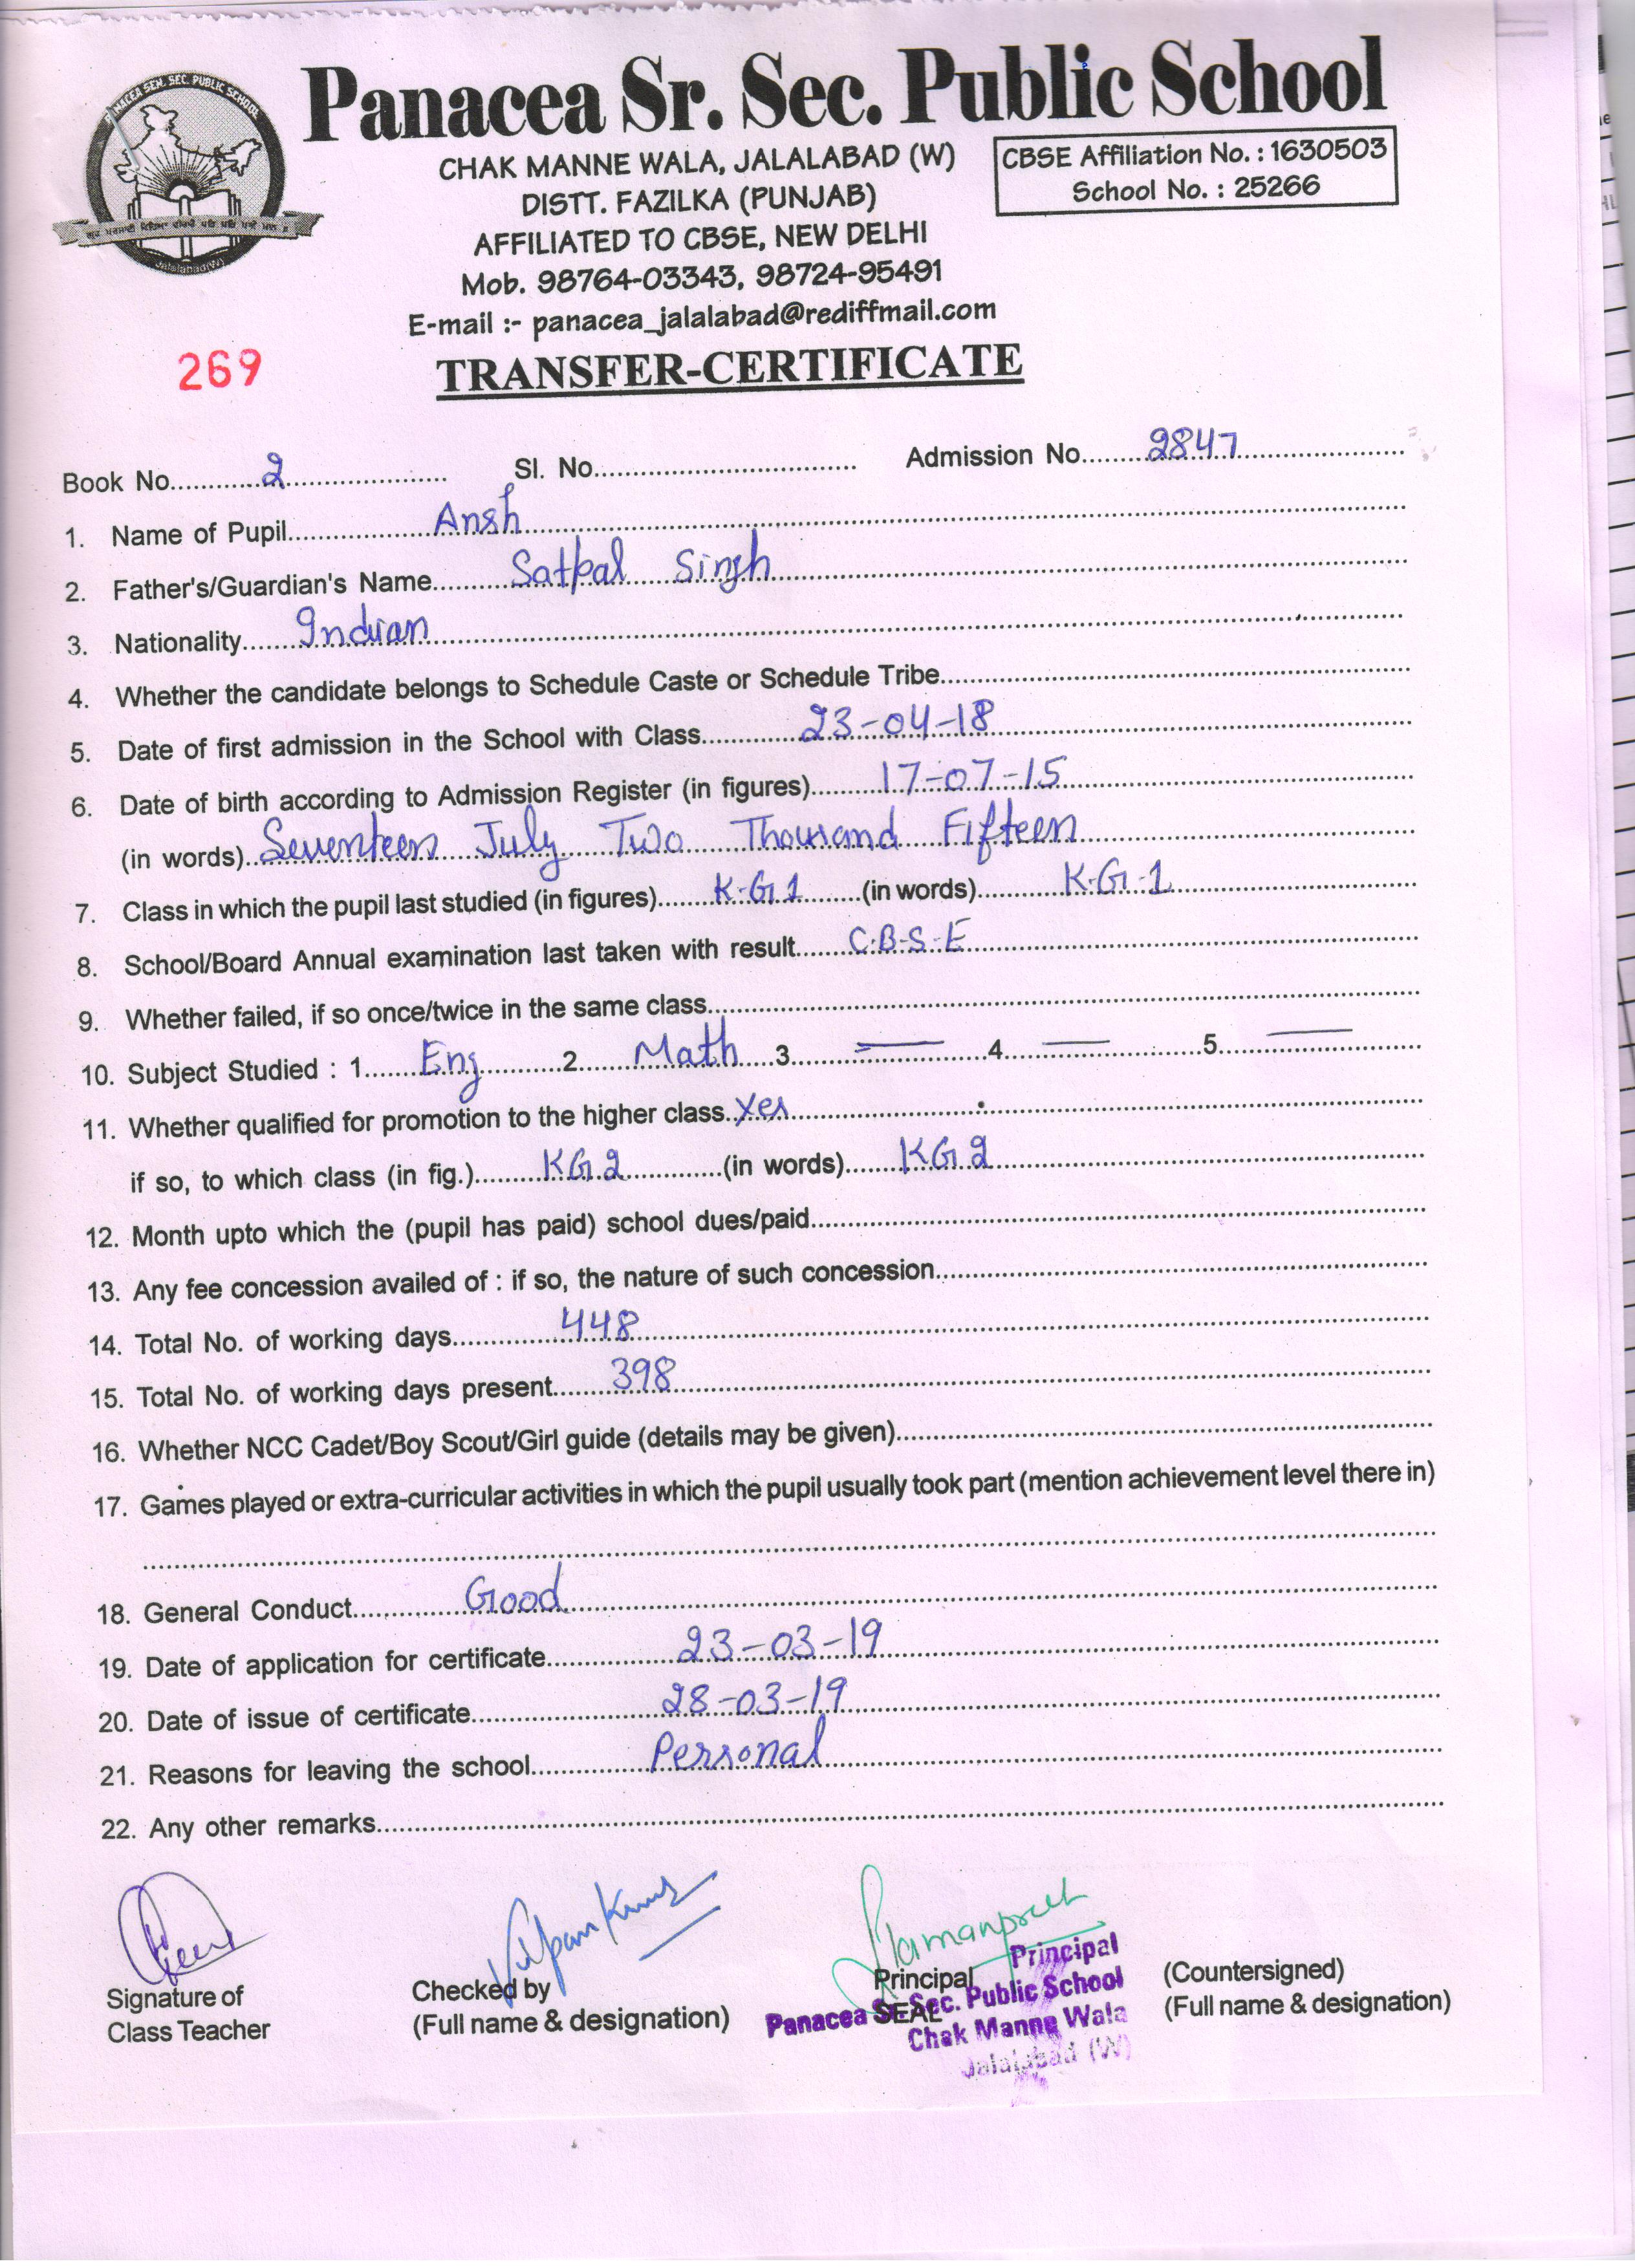 PANACEA SEN. SEC. PUBLIC SCHOOL
Jalalabad(W)
Panacea Sr. Sec. Public School
CHAK MANNE WALA, JALALABAD (W)
CBSE Affiliation No. : 1630503
School No. : 25266
DISTT. FAZILKA (PUNJAB)
AFFILIATED TO CBSE, NEW DELHI
Mob. 98764-03343, 98724-95491
E-mail :- panacea_jalalabad@rediffmail.com
269
TRANSFER-CERTIFICATE
Book No. 2 Sl. No. Admission No. 2847
1. Name of Pupil Ansh
2. Father's/Guardian's Name Satpal Singh
3. Nationality Indian
4. Whether the candidate belongs to Schedule Caste or Schedule Tribe
5. Date of first admission in the School with Class 23-04-18
6. Date of birth according to Admission Register (in figures) 17-07-15
(in words) Seventeen July Two Thousand Fifteen
7. Class in which the pupil last studied (in figures) K-G1 (in words) K-G-1
8. School/Board Annual examination last taken with result C-B-S-E
9. Whether failed, if so once/twice in the same class
10. Subject Studied : 1 Eng 2 Math 3 — 4 — 5 —
11. Whether qualified for promotion to the higher class Yes
if so, to which class (in fig.) KG2 (in words) KG2
12. Month upto which the (pupil has paid) school dues/paid
13. Any fee concession availed of : if so, the nature of such concession
14. Total No. of working days 448
15. Total No. of working days present 398
16. Whether NCC Cadet/Boy Scout/Girl guide (details may be given)
17. Games played or extra-curricular activities in which the pupil usually took part (mention achievement level there in)
18. General Conduct Good
19. Date of application for certificate 23-03-19
20. Date of issue of certificate 28-03-19
21. Reasons for leaving the school Personal
22. Any other remarks
Signature of
Class Teacher
Checked by
(Full name & designation)
Principal
SEAL
Principal
Panacea Sr. Sec. Public School
Chak Manne Wala
Jalalabad (W)
(Countersigned)
(Full name & designation)